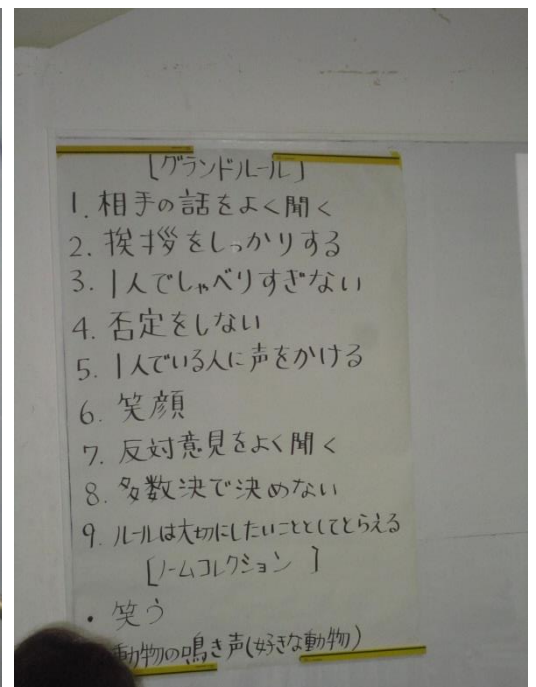 [グランドルール]
1. 相手の話をよく聞く
2. 挨拶をしっかりする
3. 1人でしゃべりすぎない
4. 否定をしない
5. 1人でいる人に声をかける
6. 笑顔
7. 反対意見をよく聞く
8. 多数決で決めない
9. ルールは大切にしたいこととしてとらえる
[ノームコレクション]
・笑う
動物の鳴き声(好きな動物)